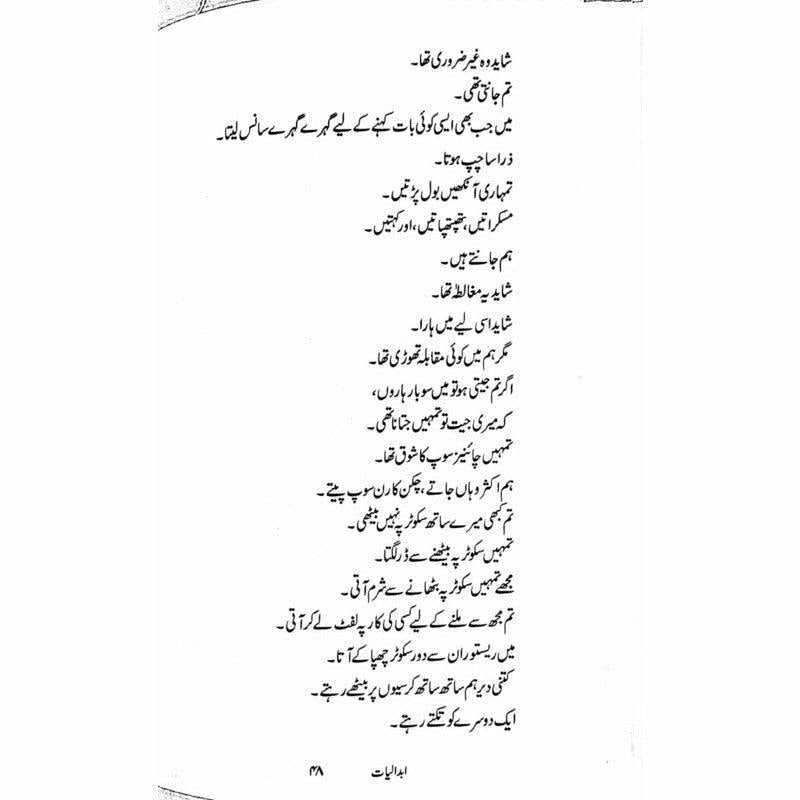 شاید وہ غیر ضروری تھا۔
تم جانتی تھی۔
میں جب بھی ایسی کوئی بات کہنے کے لیے گہرے گہرے سانس لیتا۔
ذرا سا چپ ہوتا۔
تمہاری آنکھیں بول پڑتیں۔
مسکراتیں، تھپتھپاتیں، اور کہتیں۔
ہم جانتے ہیں۔
شاید یہ مغالطہ تھا۔
شاید اسی لیے میں ہارا۔
مگر ہم میں کوئی مقابلہ تھوڑی تھا۔
اگر تم جیتی ہو تو میں سو بار ہاروں،
کہ میری جیت تو تمہیں جتانا تھی۔
تمہیں چائنیز سوپ کا شوق تھا۔
ہم اکثر وہاں جاتے، چکن کارن سوپ پیتے۔
تم کبھی میرے ساتھ سکوٹر پہ نہیں بیٹھی۔
تمہیں سکوٹر پہ بیٹھنے سے ڈر لگتا۔
مجھے تمہیں سکوٹر پہ بٹھانے سے شرم آتی۔
تم مجھ سے ملنے کے لیے کسی کی کار پہ لفٹ لے کر آتی۔
میں ریستوران سے دور سکوٹر چھپا کے آتا۔
کتنی دیر ہم ساتھ ساتھ کرسیوں پر بیٹھے رہتے۔
ایک دوسرے کو تکتے رہتے۔
ابدالیات ۴۸